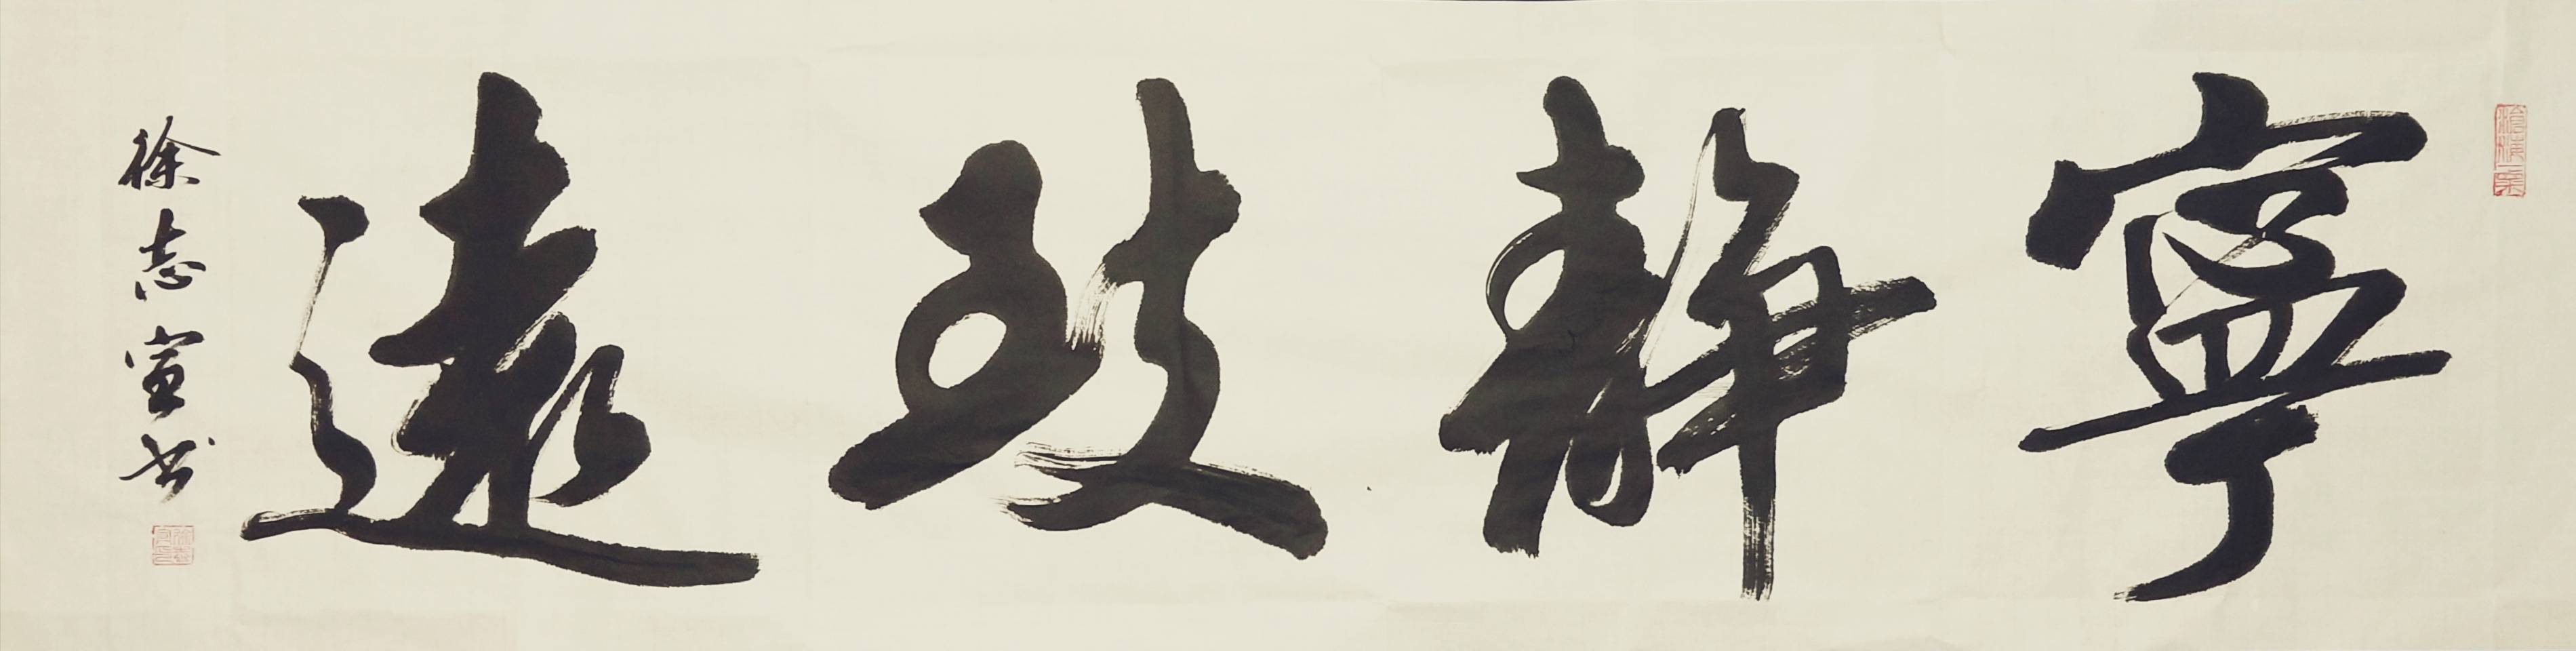 寧靜致遠
徐志宣书